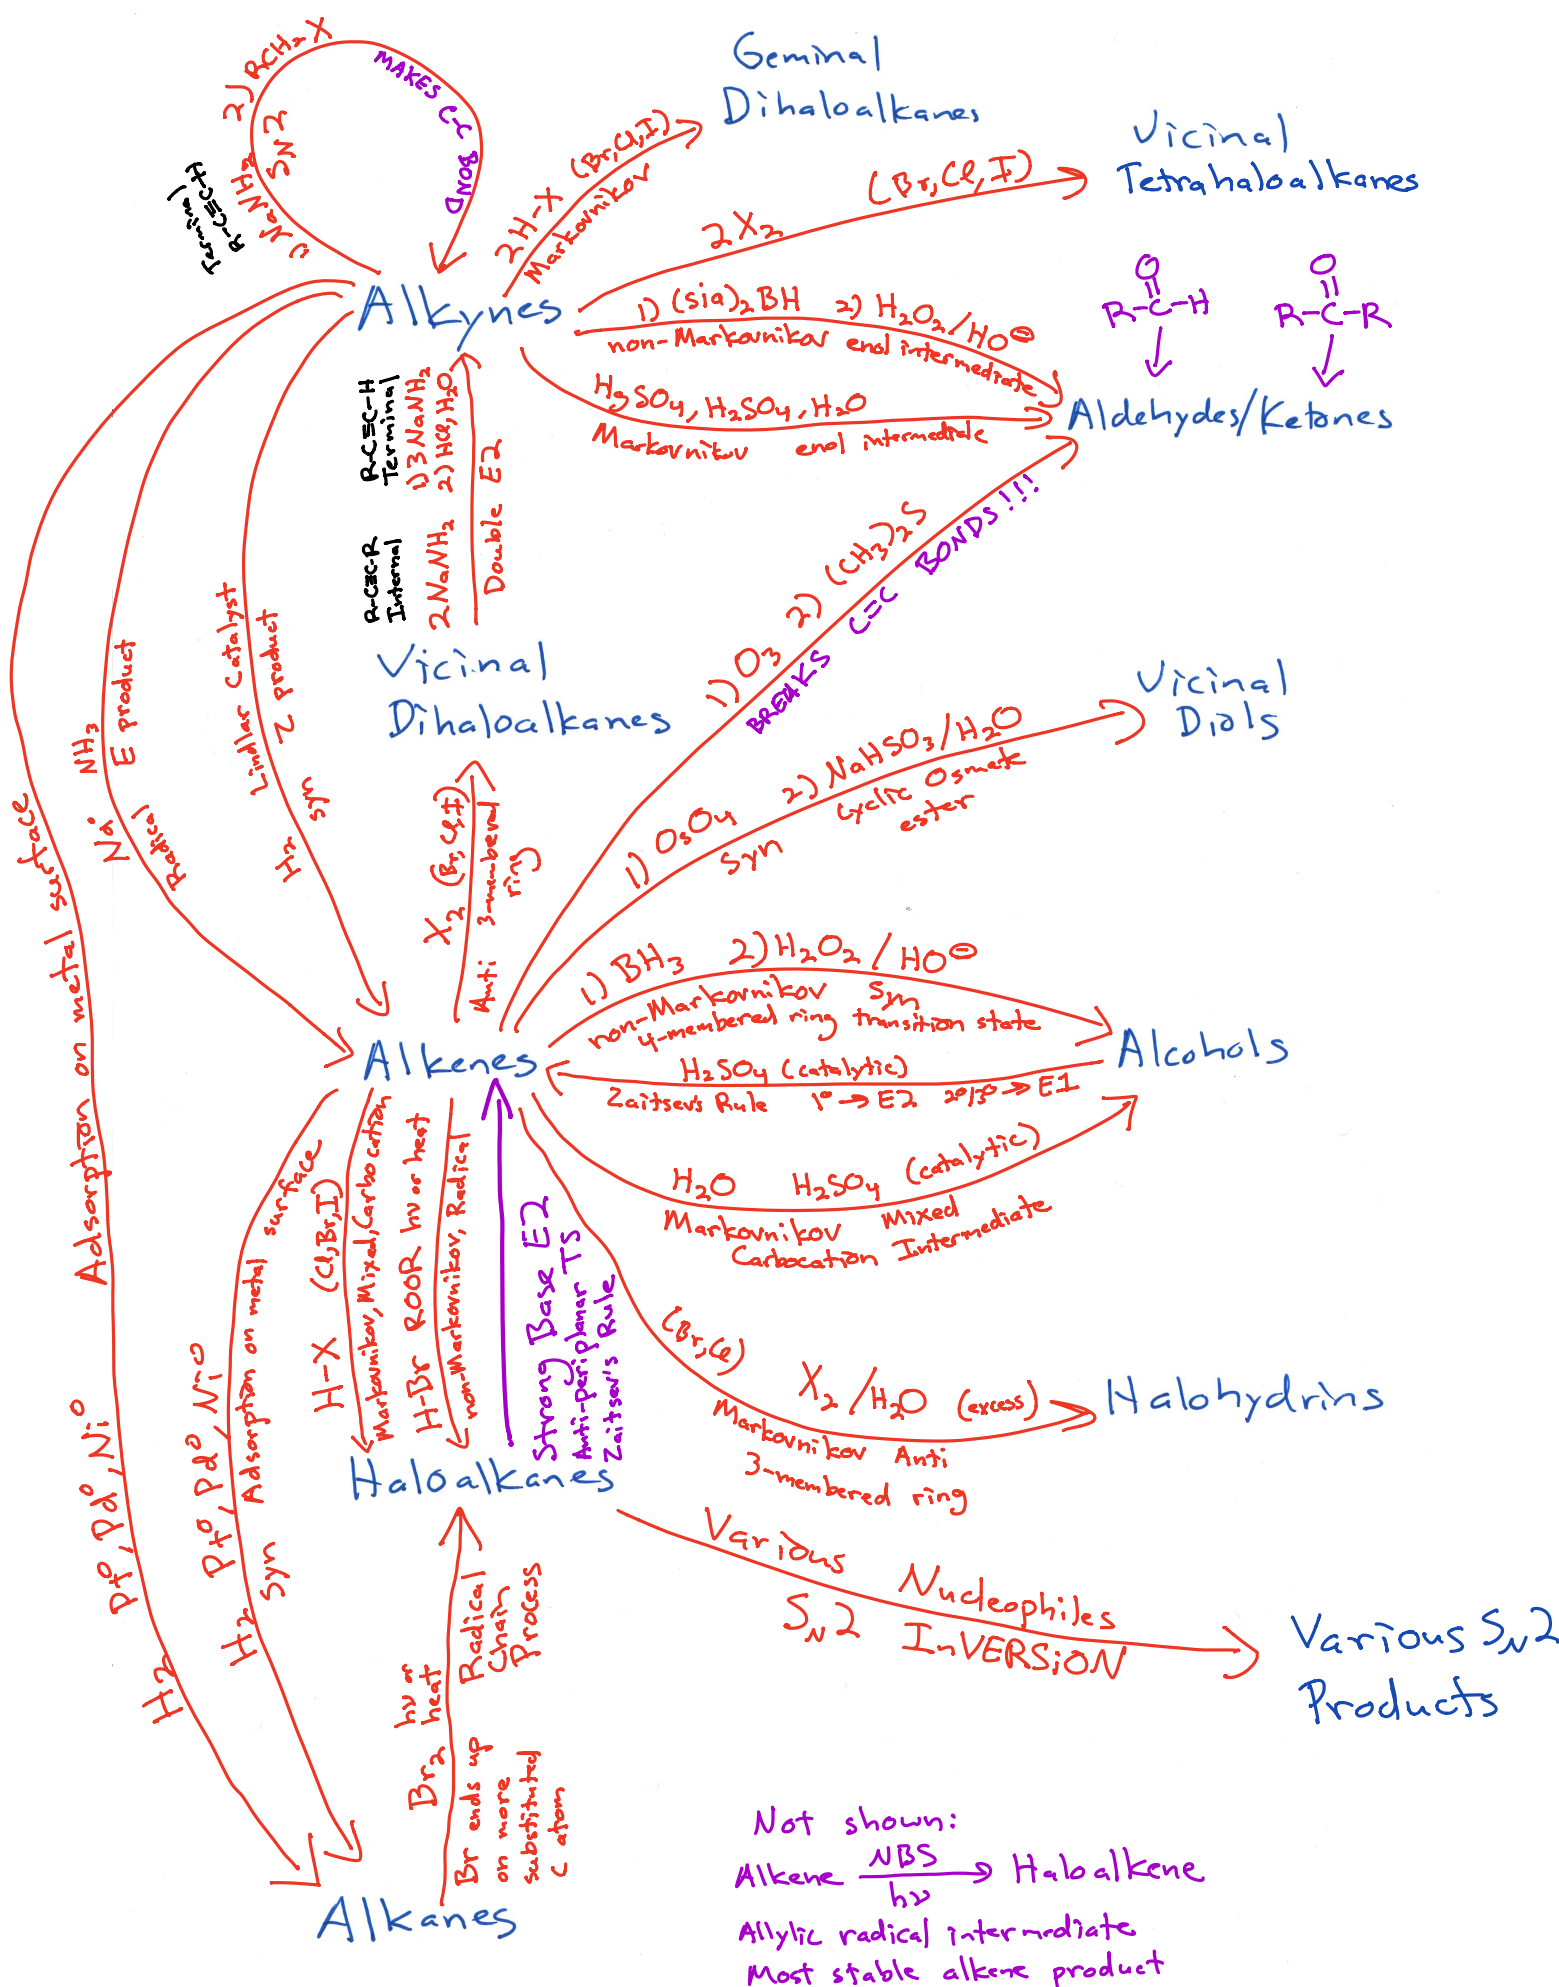 1) NaNH2 2) RCH2X
SN2
MAKES C-C BOND
Terminal
R-C≡C-H
Geminal
Dihaloalkanes
2H-X (Br,Cl,I)
Markovnikov
Vicinal
Tetrahaloalkanes
2X2 (Br,Cl,I)
Alkynes
1) (sia)2BH 2) H2O2/HO⊖
non-Markovnikov enol intermediate
HgSO4, H2SO4, H2O
Markovnikov enol intermediate
O
R-C-H
O
R-C-R
Aldehydes/Ketones
R-C≡C-H
Terminal
1) 3NaNH2
2) HCl, H2O
R-C≡C-R
Internal
2NaNH2
Double E2
Vicinal
Dihaloalkanes
1) O3 2) (CH3)2S
BREAKS C=C BONDS!!!
Vicinal
Diols
1) OsO4 2) NaHSO3/H2O
Syn
Cyclic Osmate
ester
X2 (Br,Cl,I)
Anti 3-membered
ring
Na° NH3
Radical E product
H2 Lindlar Catalyst
syn Z product
Adsorption on metal surface
H2 Pt°, Pd°, Ni°
Alkenes
1) BH3 2) H2O2 / HO⊖
non-Markovnikov Syn
4-membered ring transition state
Alcohols
H2SO4 (catalytic)
Zaitsev's Rule 1° → E2 2°/3° → E1
H2O H2SO4 (catalytic)
Markovnikov Mixed
Carbocation Intermediate
H2 Pt°, Pd°, Ni°
Syn Adsorption on metal surface
H-X (Cl,Br,I)
Markovnikov, Mixed, Carbocation
H-Br ROOR hν or heat
non-Markovnikov, Radical
Strong Base E2
Anti-periplanar TS
Zaitsev's Rule
(Br,Cl)
X2/H2O (excess)
Markovnikov Anti
3-membered ring
Halohydrins
Haloalkanes
Various Nucleophiles
SN2 InVERSiON
Various SN2
Products
Br2 hν or
heat
Radical
Chain
Process
Br ends up
on more
substituted
C atom
Alkanes
Not shown:
Alkene NBS Haloalkene
hν
Allylic radical intermediate
Most stable alkene product